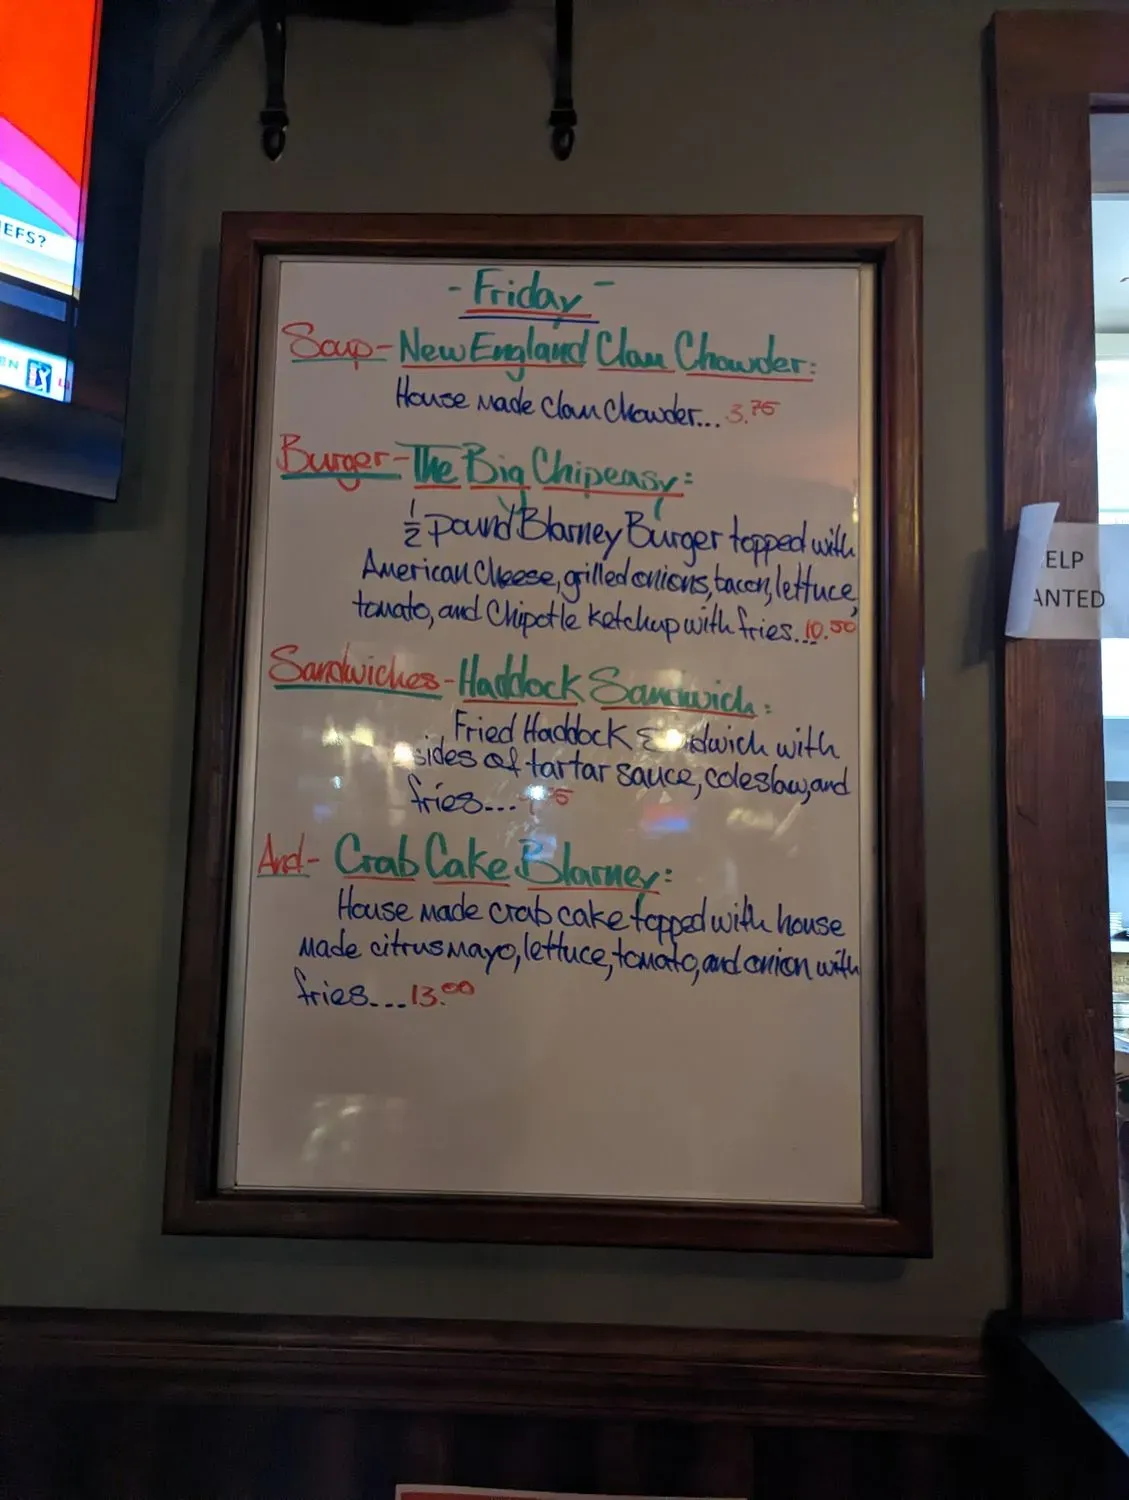 - Friday -
Soup - New England Clam Chowder:
House made clam chowder... 3.75
Burger - The Big Chipeasy:
1/2 pound Blarney Burger topped with
American cheese, grilled onions, bacon, lettuce,
tomato, and Chipotle ketchup with fries... 10.50
Sandwiches - Haddock Sandwich:
Fried Haddock Sandwich with
sides of tartar sauce, coleslaw, and
fries...
And - Crab Cake Blarney:
House made crab cake topped with house
made citrus mayo, lettuce, tomato, and onion with
fries... 13.00
EFS?
ELP
ANTED